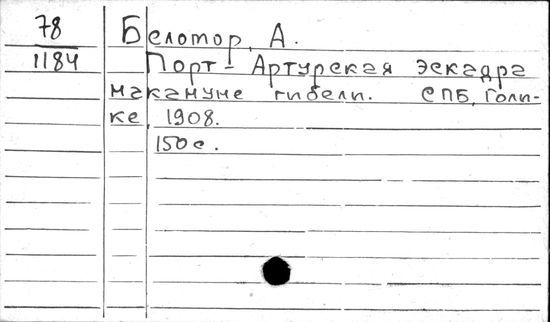 78
1184
Беломор, А.
Порт-Артурская эскадра
накануне гибели. СПБ, Голи-
ке, 1908.
150 с.